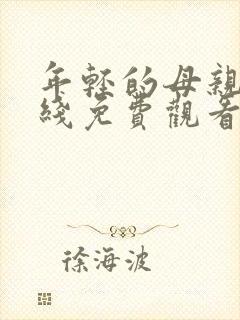 年輕的母親
綫免費觀看
徐海波